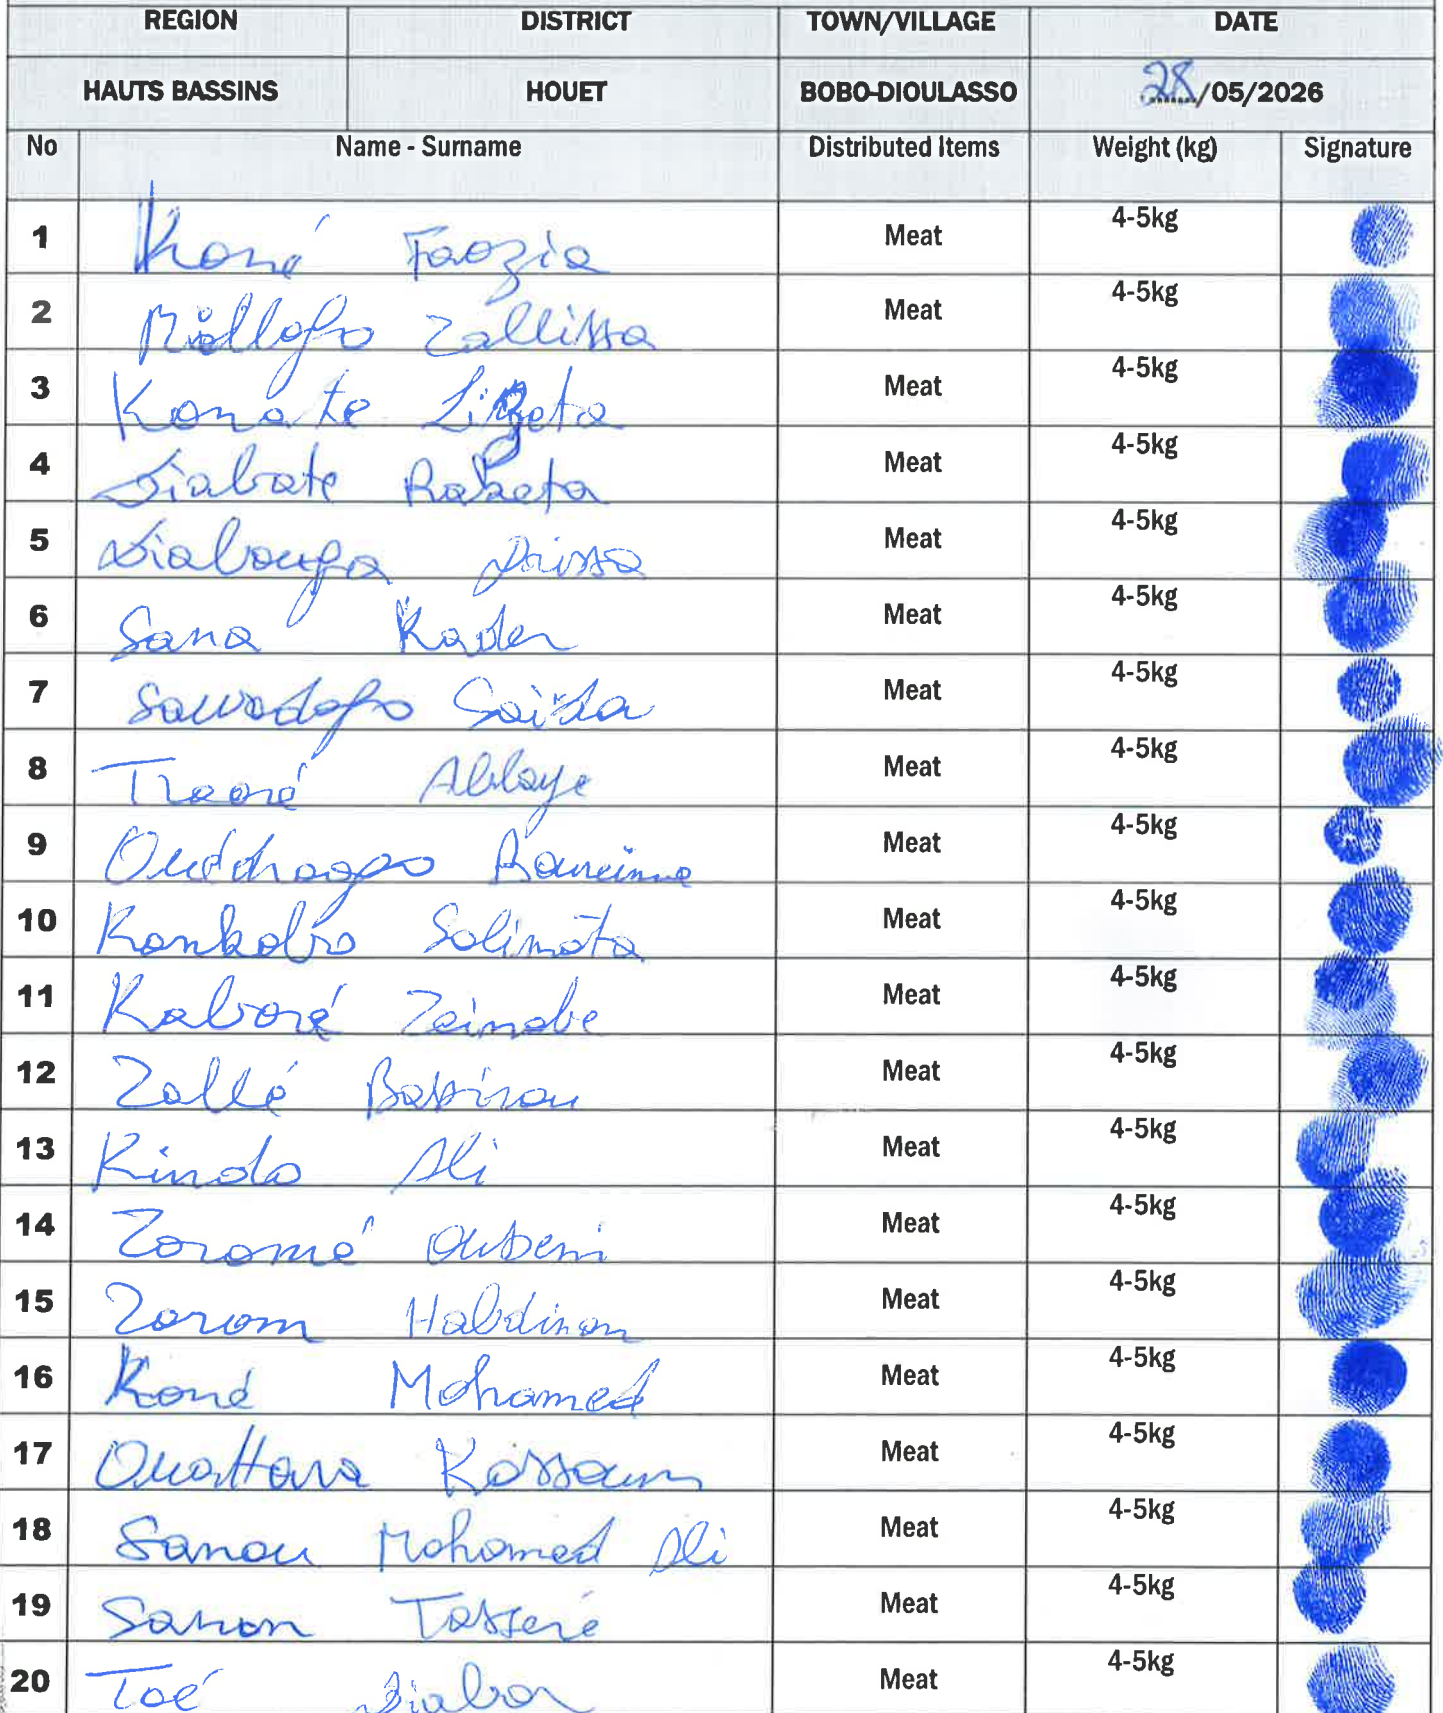 REGION DISTRICT TOWN/VILLAGE DATE
HAUTS BASSINS HOUET BOBO-DIOULASSO 28/05/2026
No Name - Surname Distributed Items Weight (kg) Signature
1 Koné Faozia Meat 4-5kg
2 Zallissa Meat 4-5kg
3 Konate Meat 4-5kg
4 Diabate Meat 4-5kg
5 Drissa Meat 4-5kg
6 Sana Kader Meat 4-5kg
7 Sawadogo Saïda Meat 4-5kg
8 Traoré Ablaye Meat 4-5kg
9 Meat 4-5kg
10 Konkobo Salimata Meat 4-5kg
11 Kaboré Zeinabe Meat 4-5kg
12 Zallé Bassirou Meat 4-5kg
13 Kindo Ali Meat 4-5kg
14 Zoromé Meat 4-5kg
15 Zorom Meat 4-5kg
16 Koné Mohamed Meat 4-5kg
17 Ouattara Kassoum Meat 4-5kg
18 Sanou Mohamed Ali Meat 4-5kg
19 Sanon Tasseré Meat 4-5kg
20 Toé Meat 4-5kg